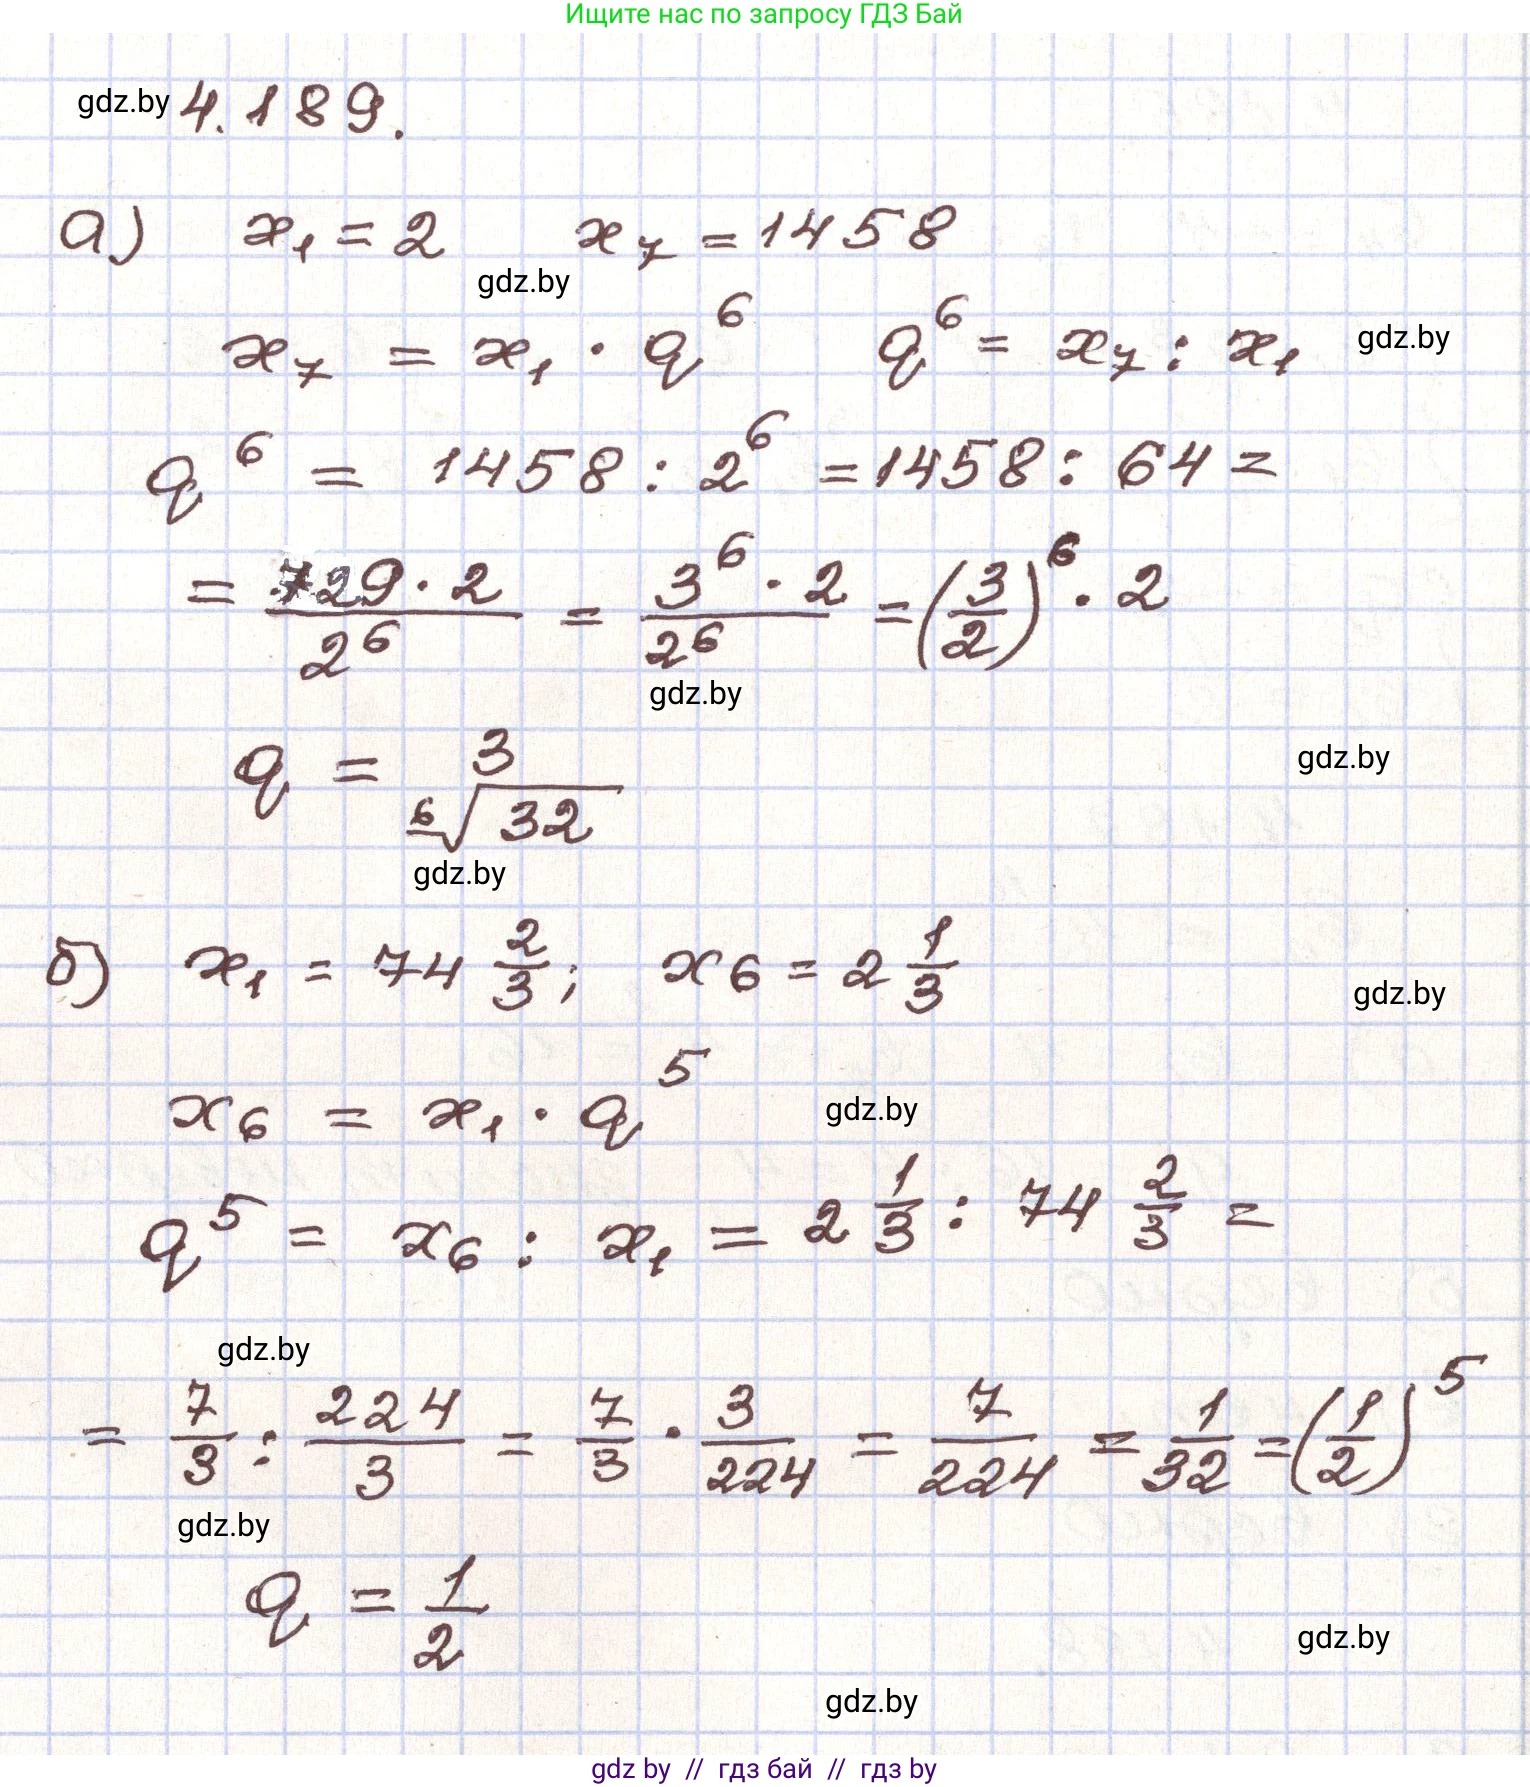 Ищите нас по запросу ГДЗ Бай
gdz.by 4.189.
а) x₁ = 2 x₇ = 1458
gdz.by
x₇ = x₁ · q⁶ q⁶ = x₇ : x₁ gdz.by
q⁶ = 1458 : 2⁶ = 1458 : 64 =
= 729·2/2⁶ = 3⁶·2/2⁶ = (3/2)⁶ · 2
gdz.by
q = 3/⁶√32 gdz.by
gdz.by
б) x₁ = 74 2/3; x₆ = 2 1/3 gdz.by
x₆ = x₁ · q⁵ gdz.by
q⁵ = x₆ : x₁ = 2 1/3 : 74 2/3 =
gdz.by
= 7/3 : 224/3 = 7/3 · 3/224 = 7/224 = 1/32 = (1/2)⁵
gdz.by
q = 1/2 gdz.by
gdz.by
gdz by // гдз бай // гдз by